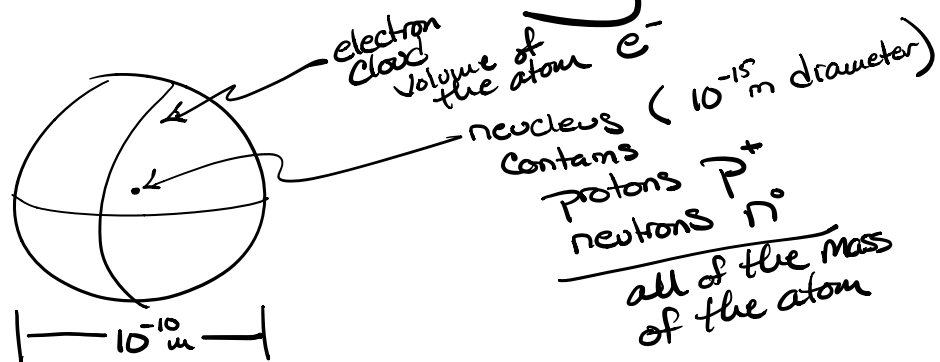 electron
cloud
volume of
the atom e⁻
neucleus (10⁻¹⁵ m diameter)
contains
protons p⁺
neutrons n°
all of the mass
of the atom
10⁻¹⁰ m